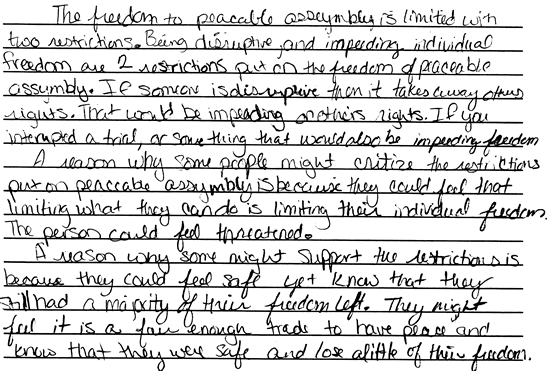 The freedom to peacable assymbly is limited with
two restrictions. Being disruptive and impeeding individual
freedom are 2 restrictions put on the freedom of peaceable
assymbly. If someone is disruptive then it takes away others
rights. That would be impeading anothers rights. If you
interupted a trial, or some thing that would also be impeeding freedom
A reason why some people might critize the restrictions
put on peaceable assymbly is because they could feel that
limiting what they can do is limiting their individual freedom.
The person could feel threatened.
A reason why some might support the restrictions is
because they could feel safe yet know that they
still had a majority of their freedom left. They might
feel it is a fair enough trade to have peace and
know that they were safe and lose alittle of their freedom.